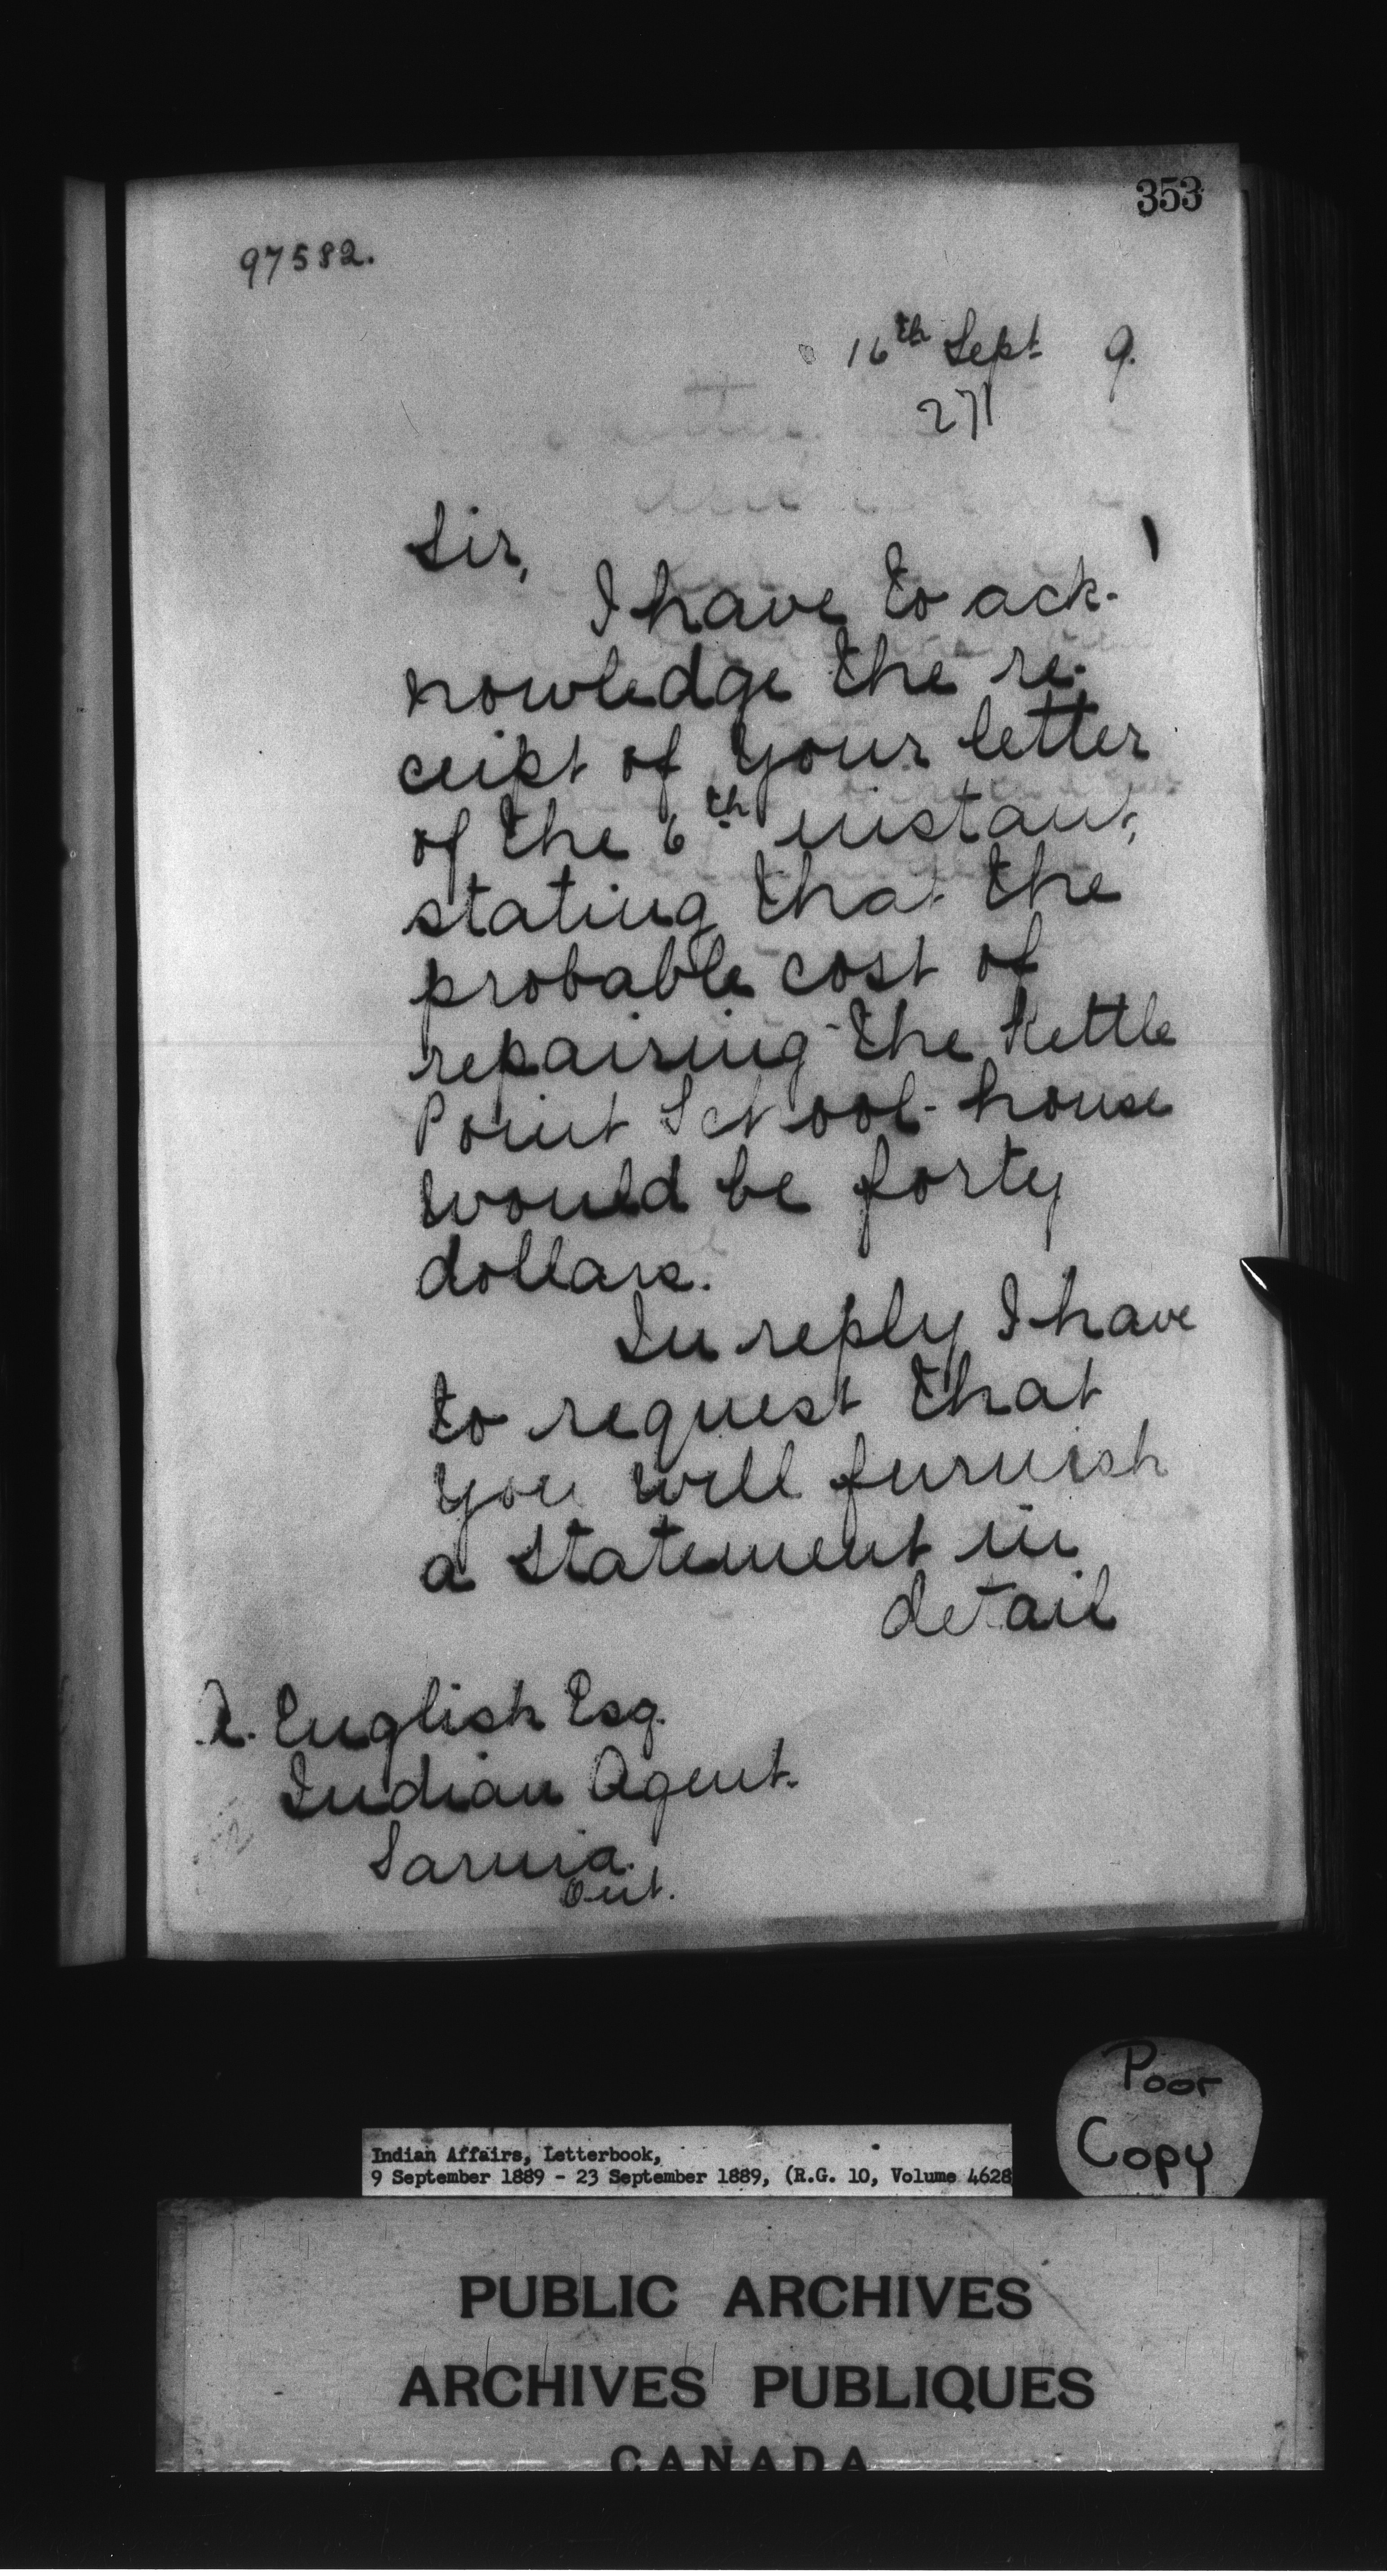 353
97582.
16th Sept 9.
271
Sir,
I have to ack-
nowledge the re-
ceipt of your letter
of the 6th instant,
stating that the
probable cost of
repairing the Kettle
Point School-house
would be forty
dollars.
In reply I have
to request that
you will furnish
a statement in
detail
A. English Esq.
Indian Agent.
Sarnia.
Ont.
Poor
Copy
Indian Affairs, Letterbook,
9 September 1889 - 23 September 1889, (R.G. 10, Volume 4628
PUBLIC ARCHIVES
ARCHIVES PUBLIQUES
CANADA